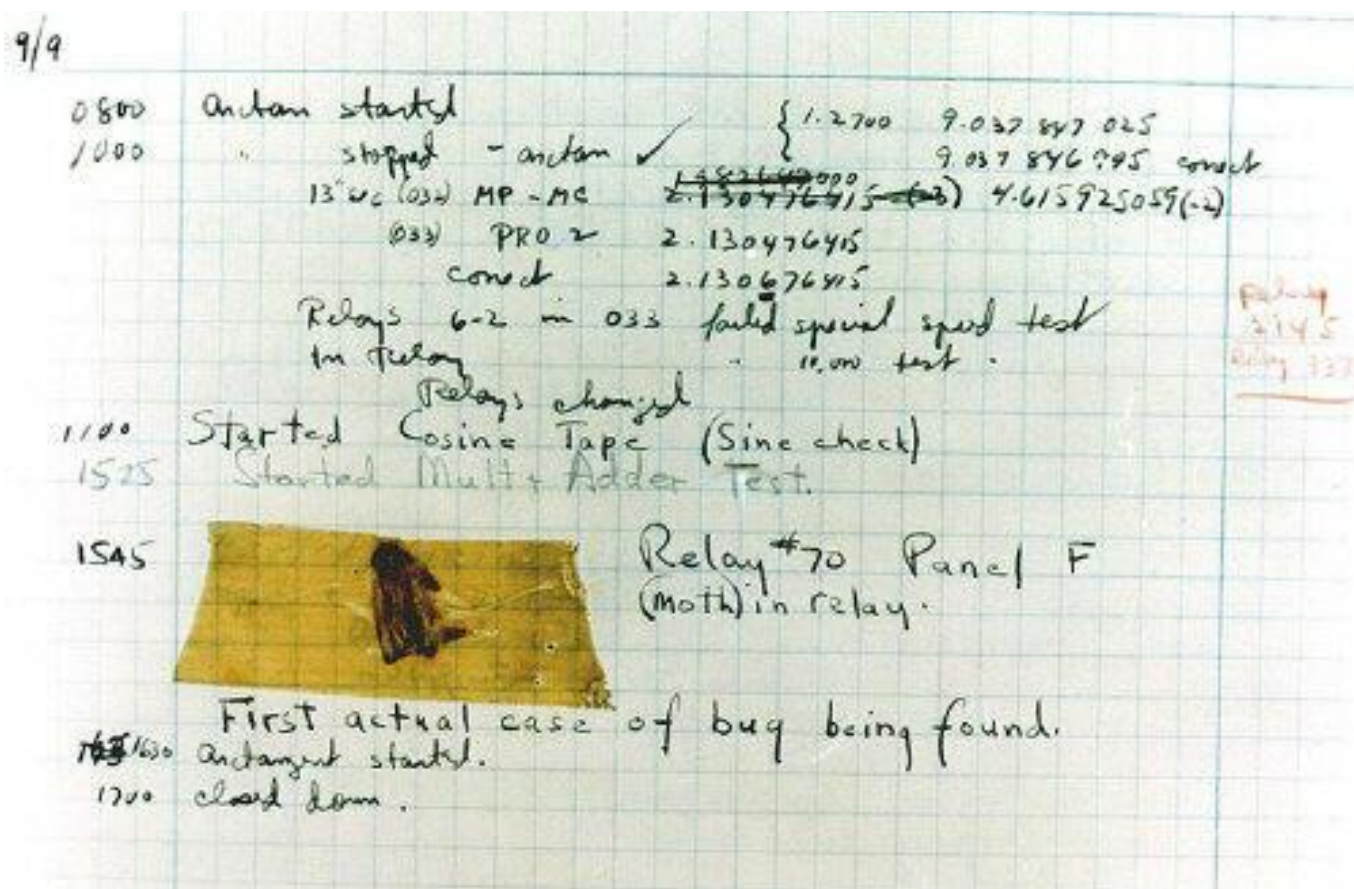 9/9
0800 Antan started
1000 " stopped - antan ✓ { 1.2700 9.037 847 025
9.037 846 995 correct
13"uc (032) MP - MC 2.130476415 (-3) 4.615925059(-2)
(033) PRO 2 2.130476415
correct 2.130676415
Relays 6-2 in 033 failed special speed test
In Relay " 10,000 test .
Relay
2145
Relay 337
Relays changed
1100 Started Cosine Tape (Sine check)
1525 Started Mult + Adder Test.
1545 Relay #70 Panel F
(moth) in relay.
First actual case of bug being found.
1630 Antangent started.
1700 closed down .